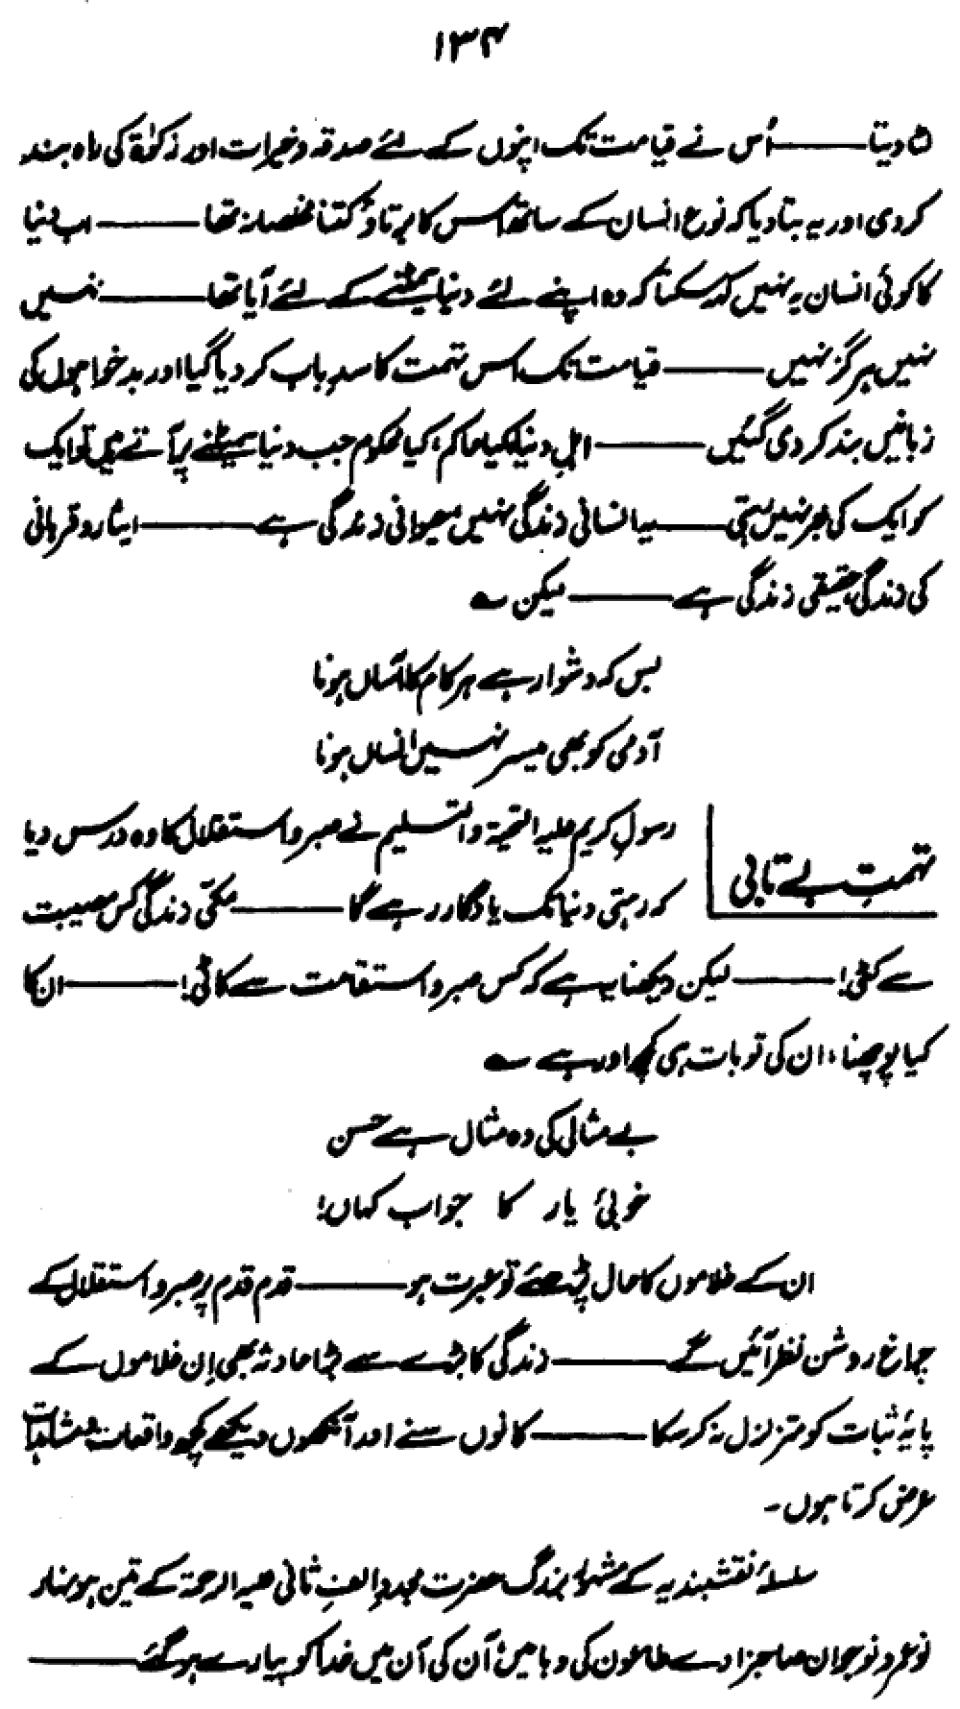 ۱۳۴
تا دیتا ——— اُس نے قیامت تک اپنوں کے لئے صدقہ و خیرات اور زکوٰۃ کی راہ بند
کر دی اور یہ بتا دیا کہ نوع انسان کے ساتھ اس کا برتاؤ کتنا مخلصانہ تھا ——— اب دنیا
کا کوئی انسان یہ نہیں کہہ سکتا کہ وہ اپنے لئے دنیا سمیٹنے کے لئے آیا تھا ——— نہیں
نہیں ہرگز نہیں ——— قیامت تک اس تہمت کا سدِ باب کر دیا گیا اور بدخواہوں کی
زبانیں بند کر دی گئیں ——— اہلِ دنیا کیا حاکم، کیا محکوم جب دنیا سمیٹنے پر آتے ہیں تو ایک
کو ایک کی خبر نہیں رہتی ——— یہ انسانی زندگی نہیں حیوانی زندگی ہے ——— ایثار و قربانی
کی زندگی حقیقی زندگی ہے ——— لیکن ؎
بس کہ دشوار ہے ہر کام کا آساں ہونا
آدمی کو بھی میسر نہیں انساں ہونا
تہمتِ بے تابی
رسولِ کریم علیہ التحیۃ والتسلیم نے صبر و استقلال کا وہ درس دیا
کہ رہتی دنیا تک یادگار رہے گا ——— مکّی زندگی کس مصیبت
سے کٹی! ——— لیکن دیکھنا یہ ہے کہ کس صبر و استقامت سے کاٹی! ——— ان کا
کیا پوچھنا، ان کی تو بات ہی کچھ اور ہے ؎
بے مثالی کی وہ مثال ہے حسن
خوبیٔ یار کا جواب کہاں!
ان کے غلاموں کا حال پڑھئے تو عبرت ہو ——— قدم قدم پر صبر و استقلال کے
چراغ روشن نظر آئیں گے ——— زندگی کا بڑے سے بڑا حادثہ بھی اِن غلاموں کے
پایۂ ثبات کو متزلزل نہ کر سکا ——— کانوں سنے اور آنکھوں دیکھے کچھ واقعات و مشاہدات
عرض کرتا ہوں۔
سلسلۂ نقشبندیہ کے مشہور بزرگ حضرت مجدد الف ثانی علیہ الرحمۃ کے تین ہونہار
نوعمر و نوجوان صاحبزادے طاعون کی وبا میں آن کی آن میں خدا کو پیارے ہو گئے ———